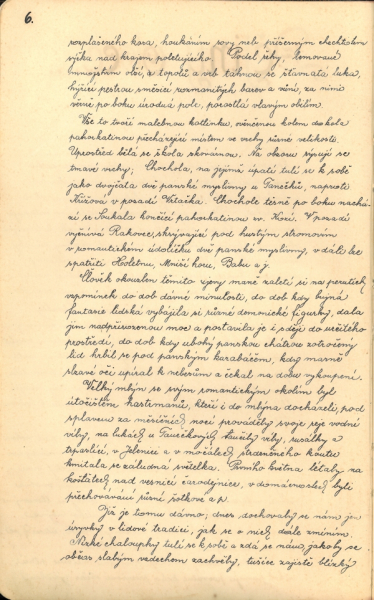 6.
rozplašeného kosa, houkáním sovy neb příšerným chechtotem
výžku nad krajem poletujícího. Podél řeky, lemované
množstvím olší, a topolů a vrb táhnou se šťavnatá luka,
hýřící pestrou směsicí rozmanitých barev a vůní, za nimi
výše po boku úrodná pole, porostlá vlavým obilím.
Vše to tvoří malebnou kotlinku, věnčenou kolem dokola
pahorkatinou přecházející místem ve vrchy různé velikosti.
Uprostřed bělá se škola skovánou. Na obzoru rýsují se
tmavé vrchy; Chochola, na jejímž úpatí tulí se k sobě
jako dvojčata dvě panské myslivny u Tanečků, naproti
Křížová v pozadí Vrtačka. Chochole těsně po boku nachá-
zí se Loukala končící pahorkatinou sv. Kocí. V pozadí
vyčnívá Rakovec, skrývající pod hustým stromovím
v romantickém údolíčku dvě panské myslivny, v dáli lze
spatřiti Holetnu, Mniší horu, Babu a j.
Člověk okouzlen těmito zjevy maně zaletí si na perutích
vzpomínek do dob dávné minulosti, do dob kdy bujná
fantasie lidská vybájila si různé démonické figurky, dala
jim nadpřirozenou moc a postavila je i s ději do určitého
prostředí, do dob kdy ubohý panskou chátrou zotročený
lid hrbil se pod panským karabáčem, kdy marně
slzavé oči upíral k nebesům a čekal na dobu vykoupení.
Velký mlýn se svým romantickým okolím byl
útočištěm hastrmanů, kteří i do mlýna docházeli, pod
splavem za měsíčních nocí prováděly svoje reje vodní
víly, na lukách u Tanečkových kučely víly, rusalky a
trpaslíci, v Jelenci a v močálech studeného koutu
kmitala se záludná světélka. Prvního května létaly na
košťatech nad vesnicí čarodějnice, v domácnostech byli
přechováváni různí šotkové a p.
Již je tomu dávno; dnes dochovaly se nám jen
úryvky v lidové tradici, jak se o nich dále zmíním.
Nízké chaloupky tulí se k sobě a zdá se nám, jakoby se
občas slabým vzdechem zachvěly, tušíce zajisté blízký